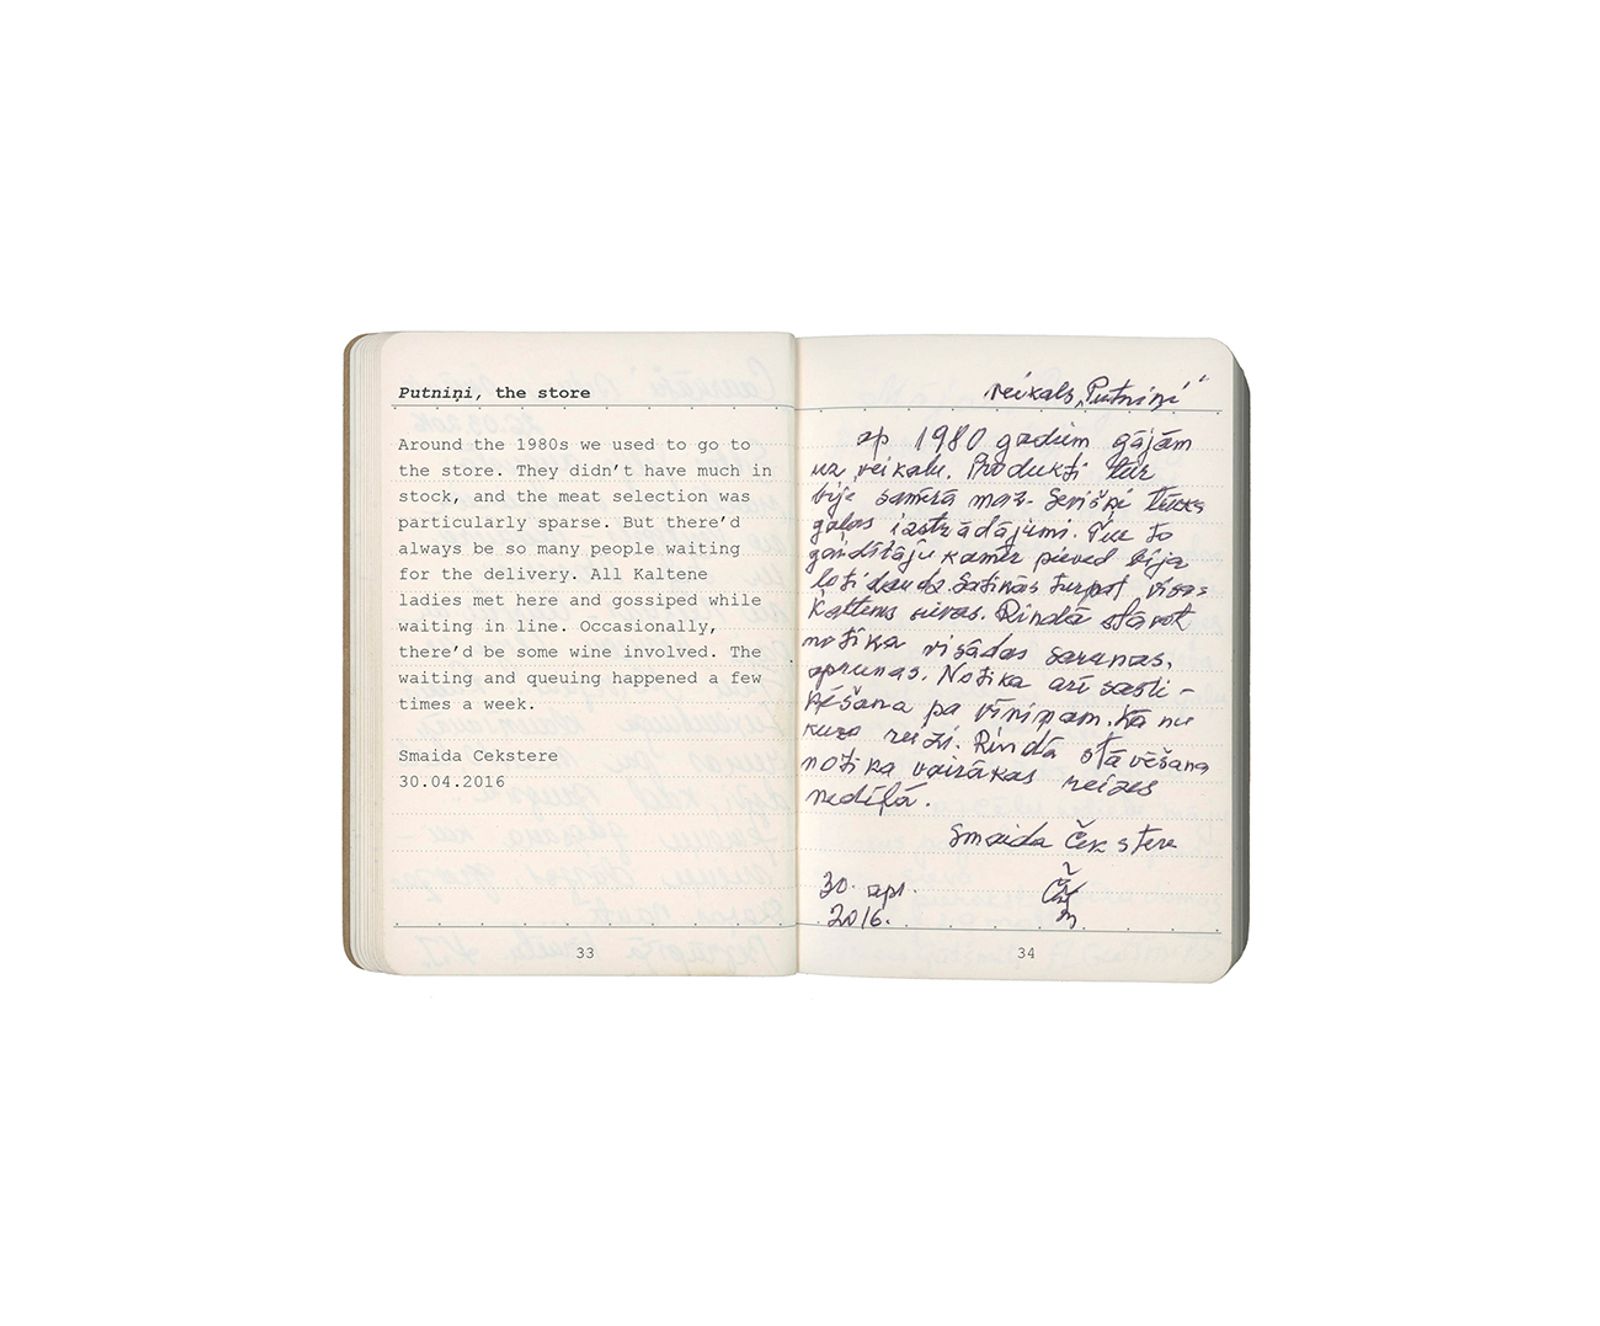 Putniņi, the store
Around the 1980s we used to go to
the store. They didn't have much in
stock, and the meat selection was
particularly sparse. But there'd
always be so many people waiting
for the delivery. All Kaltene
ladies met here and gossiped while
waiting in line. Occasionally,
there'd be some wine involved. The
waiting and queuing happened a few
times a week.
Smaida Cekstere
30.04.2016
33
veikals „Putniņi"
ap 1980 gadiem gājām
uz veikalu. Produkti tur
bija samērā maz. Sevišķi
gaļas izstrādājumi. to
gaidītāju kamēr pieved bija
ļoti daudz. Satinās turpat visas
Kaltenes sievas. Rindā stāvot
notika visādas sarunas,
aprunas. Notika arī sasli-
pēšana pa vīniņam. Kā nu
kuro reizi. Rindā stāvēšana
notika vairākas reizes
nedēļā.
Smaida Čekstere
30. apr.
2016.
34